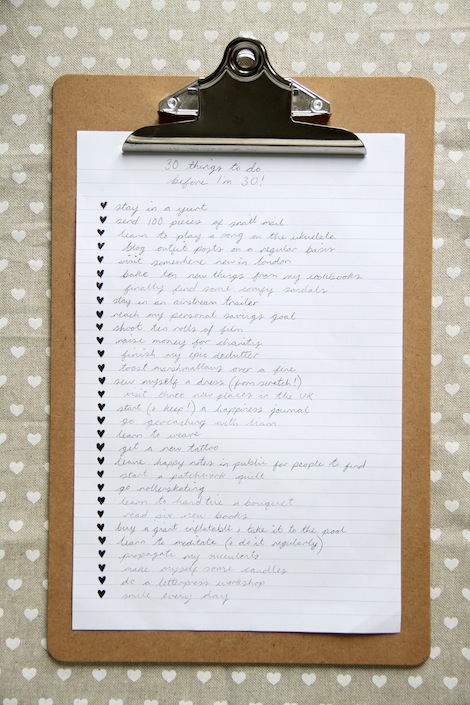 30 things to do
before I'm 30!
stay in a yurt
send 100 pieces of snail mail
learn to play a song on the ukulele
blog outfit posts on a regular basis
visit somewhere new in london
bake ten new things from my cookbooks
finally find some comfy sandals
stay in an airstream trailer
reach my personal savings goal
shoot ten rolls of film
raise money for charity
finish my epic declutter
toast marshmallows over a fire
sew myself a dress (from scratch!)
visit three new places in the UK
start (& keep!) a happiness journal
go geocaching with liam
learn to weave
get a new tattoo
leave happy notes in public for people to find
start a patchwork quilt
go rollerskating
learn to hand tie a bouquet
read six new books
buy a giant inflatable & take it to the pool
learn to meditate (& do it regularly)
propagate my succulents
make myself some candles
do a letterpress workshop
smile every day